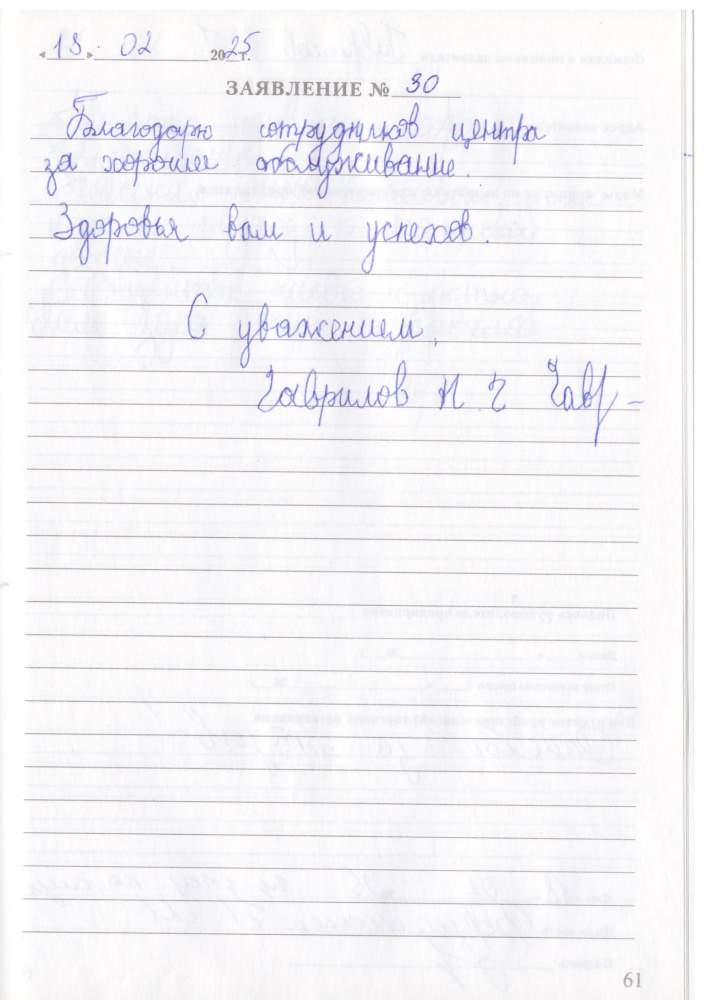 « 18 » 02 2025 г.
ЗАЯВЛЕНИЕ № 30
Благодарю сотрудников центра
за хорошее обслуживание.
Здоровья вам и успехов.
С уважением,
Гаврилов Н. Г Гавр
61